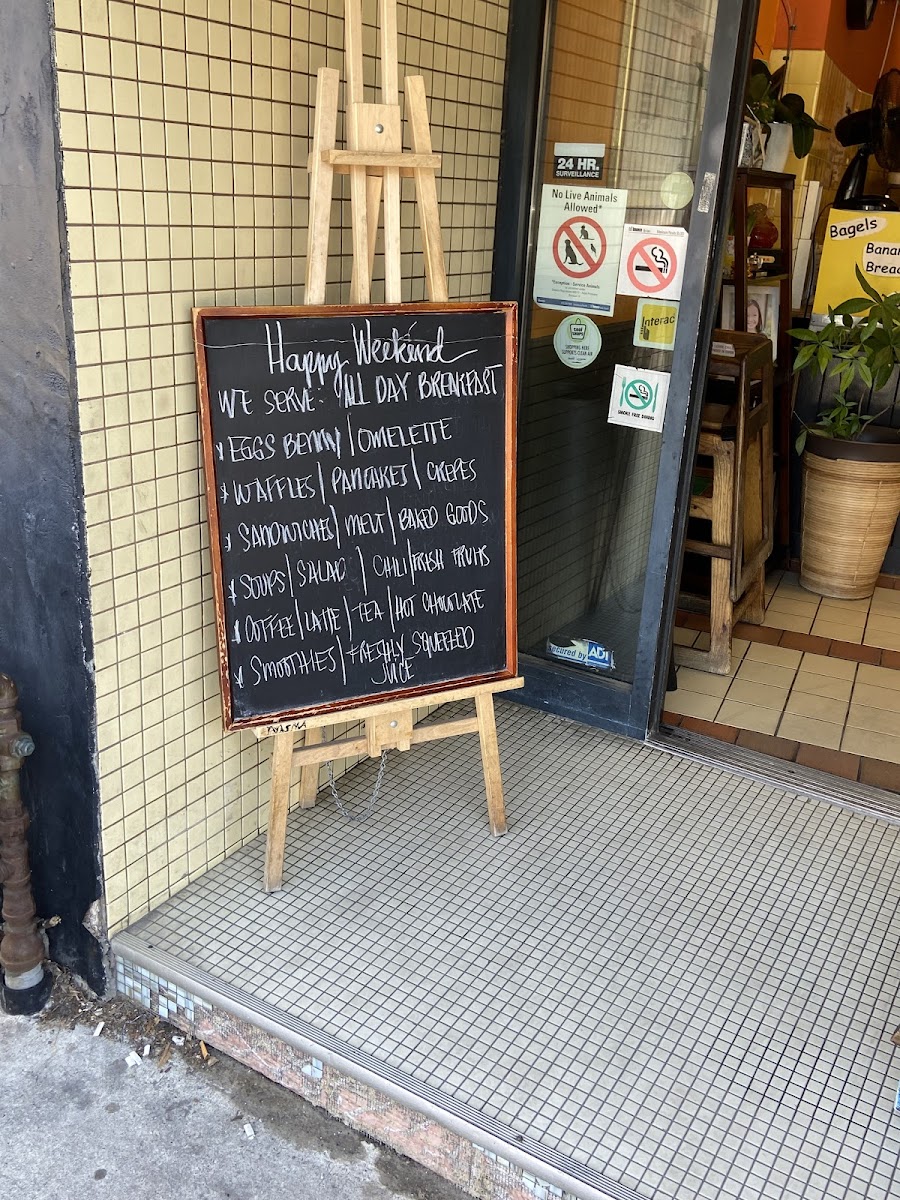 Happy Weekend
WE SERVE: ALL DAY BREAKFAST
* EGGS BENNY | OMELETTE
* WAFFLES | PANCAKES | CREPES
* SANDWICHES | MELT | BAKED GOODS
* SOUPS | SALAD | CHILI | FRESH FRUITS
* COFFEE | LATTE | TEA | HOT CHOCOLATE
* SMOOTHIES | FRESHLY SQUEEZED
JUICE
24 HR.
SURVEILLANCE
No Live Animals
Allowed*
Interac
SHOPPING HERE
SUPPORTS CLEAN AIR
SMOKE FREE DINING
secured by ADT
Bagels
Banan
Bread